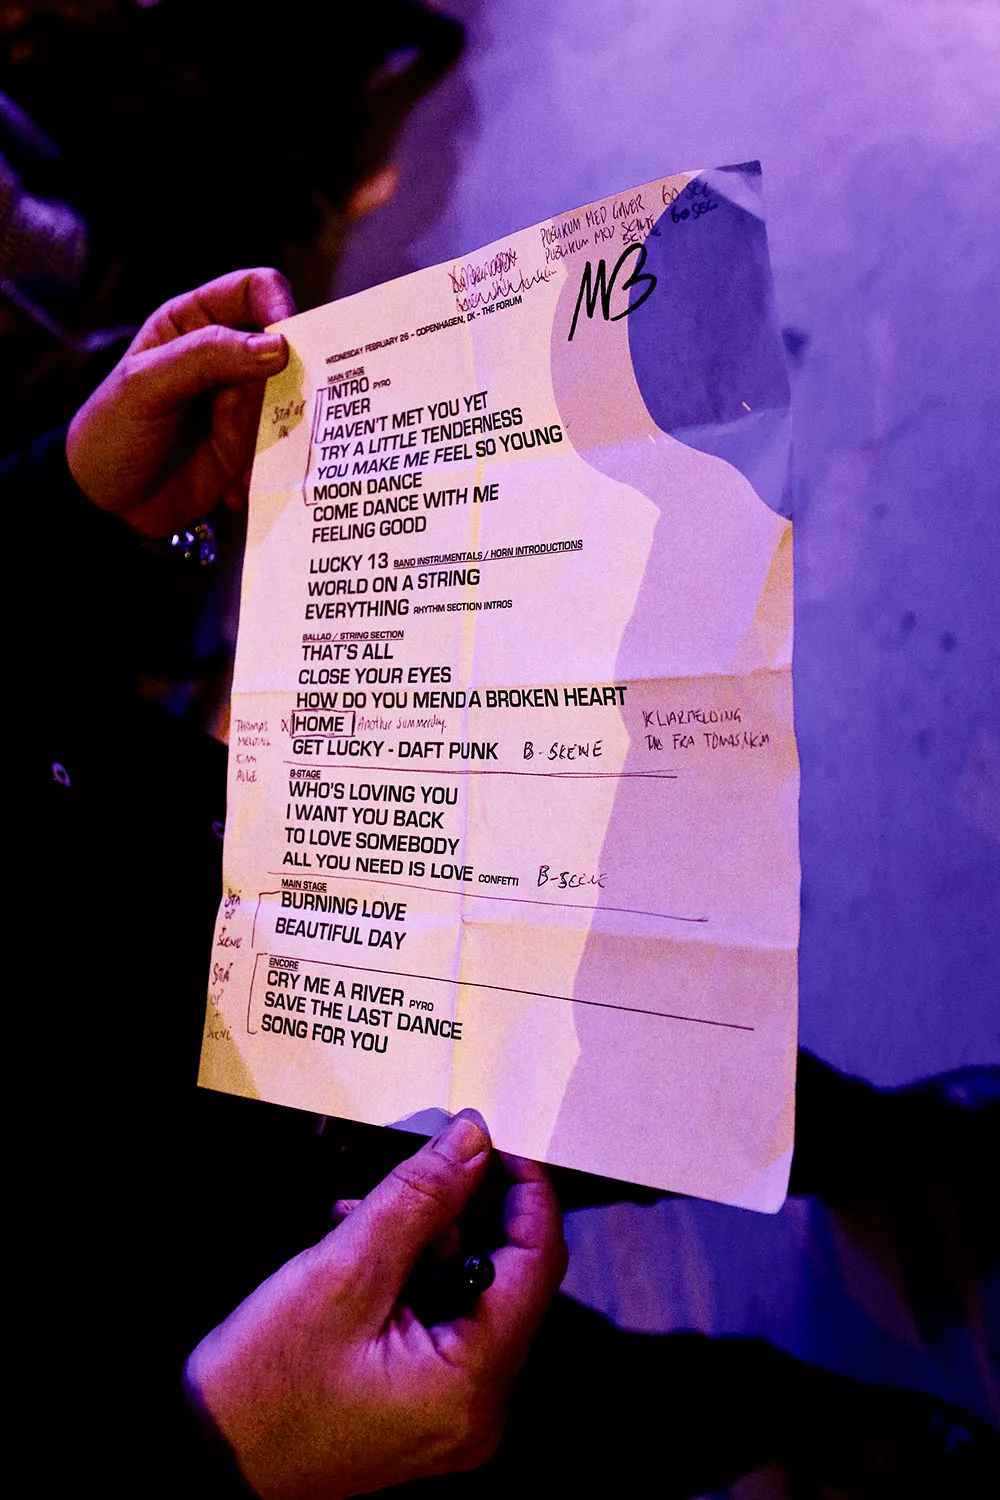 PUBLIKUM MED GAVER 60 SEC
PUBLIKUM MED SCENE 60 SEC
MB
WEDNESDAY FEBRUARY 26 - COPENHAGEN, DK - THE FORUM
MAIN STAGE
INTRO PYRO
FEVER
HAVEN'T MET YOU YET
TRY A LITTLE TENDERNESS
YOU MAKE ME FEEL SO YOUNG
MOON DANCE
COME DANCE WITH ME
FEELING GOOD
LUCKY 13 BAND INSTRUMENTALS / HORN INTRODUCTIONS
WORLD ON A STRING
EVERYTHING RHYTHM SECTION INTROS
BALLAD / STRING SECTION
THAT'S ALL
CLOSE YOUR EYES
HOW DO YOU MEND A BROKEN HEART
THOMAS MELDING KIM ALLE
X HOME Another Summerday.
KLARMELDING
FRA TOMAS/KIM
GET LUCKY - DAFT PUNK B-SKENE
B-STAGE
WHO'S LOVING YOU
I WANT YOU BACK
TO LOVE SOMEBODY
ALL YOU NEED IS LOVE CONFETTI B-SCENE
MAIN STAGE
STÅ OP + SCENE
BURNING LOVE
BEAUTIFUL DAY
ENCORE
STÅ OP + SCENE
CRY ME A RIVER PYRO
SAVE THE LAST DANCE
SONG FOR YOU